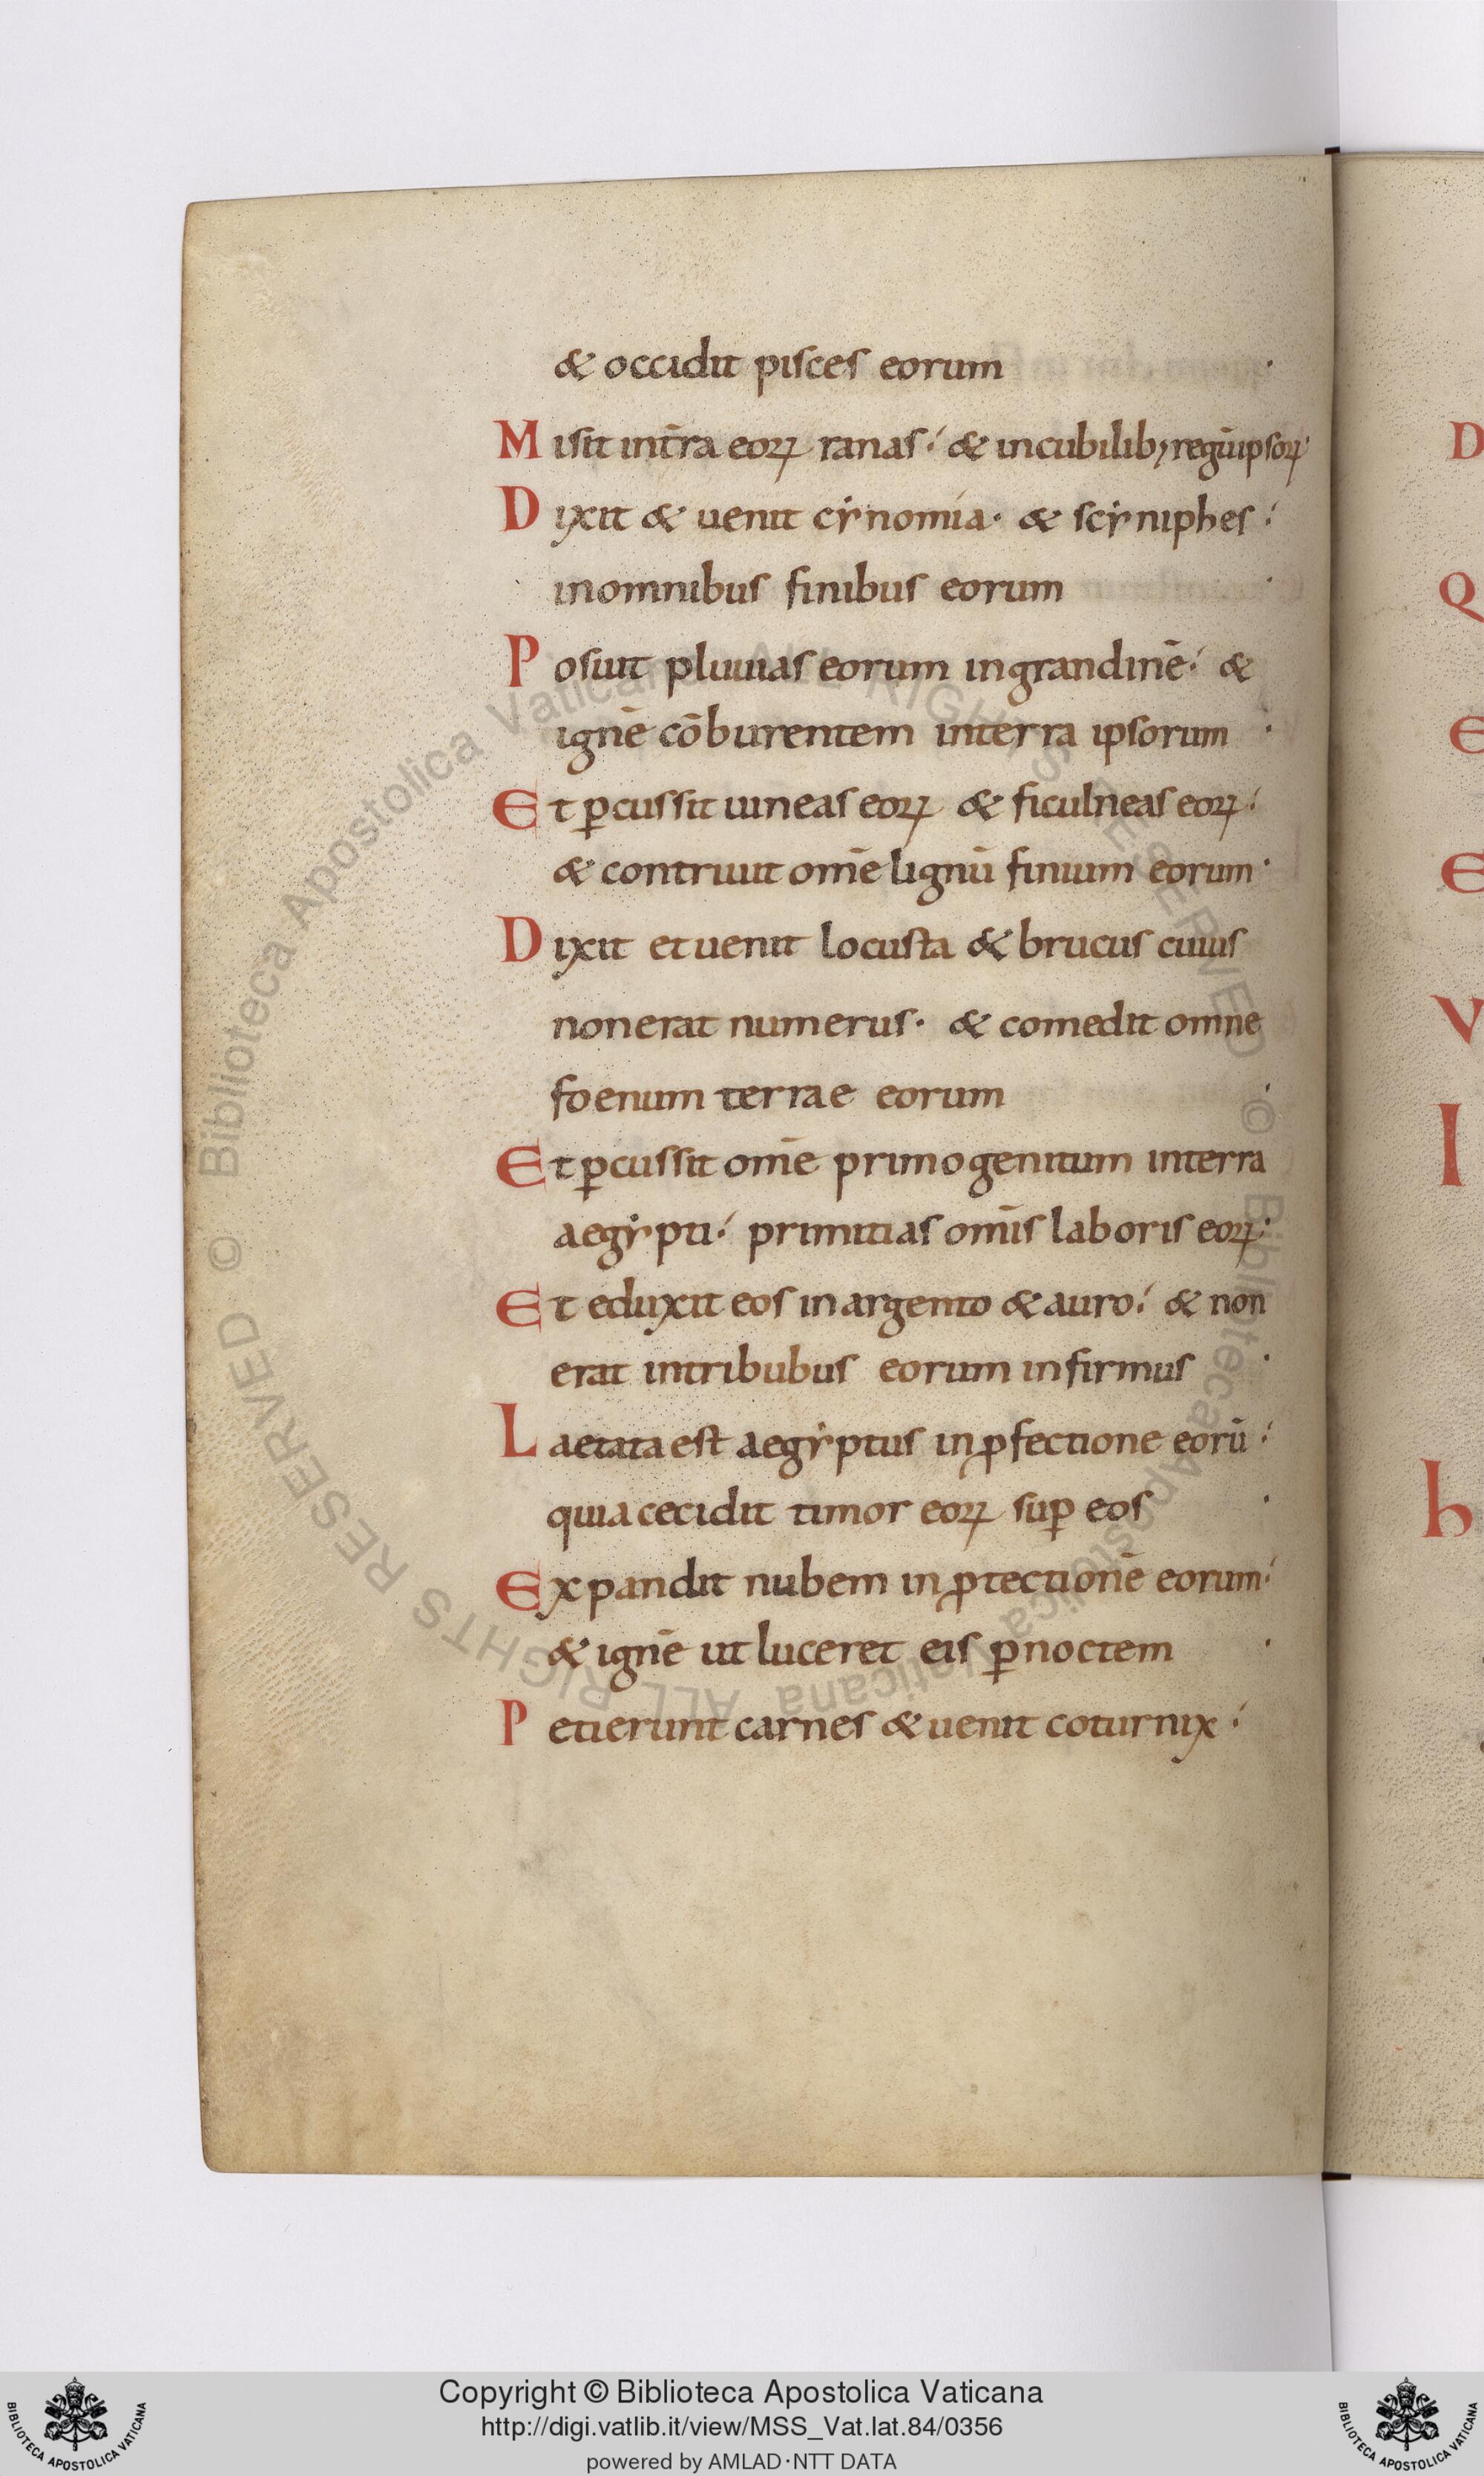 & occidit pisces eorum
Misit intra eorꝝ ranas⸵ & incubilibꝫ regūipsorꝝ·
Dixit & uenit cẏnomia· & scẏniphes⸵
inomnibus finibus eorum ·
Posuit pluuias eorum ingrandinē⸵ &
ignē cōburentem interra ipsorum ·
Et ꝑcussit uineas eorꝝ & ficulneas eorꝝ⸵
& contriuit om̄e lignū finium eorum·
Dixit etuenit locusta & brucus cuius
nonerat numerus· & comedit omne
foenum terrae eorum ·
Et ꝑcussit om̄e primogenitum interra
aegẏpti⸵ primitias om̄is laboris eorꝝ·
Et eduxit eos inargento & auro⸵ & non
erat intribubus eorum infirmus ·
Laetata est aegẏptus inꝓfectione eorū⸵
quia cecidit timor eorꝝ suꝑ eos ·
Expandit nubem inꝓtectionē eorum⸵
& ignē ut luceret eis ꝑnoctem ·
Petierunt carnes & uenit coturnix⸵
D
Q
E
E
V
I
h
© Biblioteca Apostolica Vaticana ALL RIGHTS RESERVED © Biblioteca Apostolica Vaticana ALL RIGHTS RESERVED
Copyright © Biblioteca Apostolica Vaticana
http://digi.vatlib.it/view/MSS_Vat.lat.84/0356
powered by AMLAD·NTT DATA
BIBLIOTECA APOSTOLICA VATICANA
BIBLIOTECA APOSTOLICA VATICANA